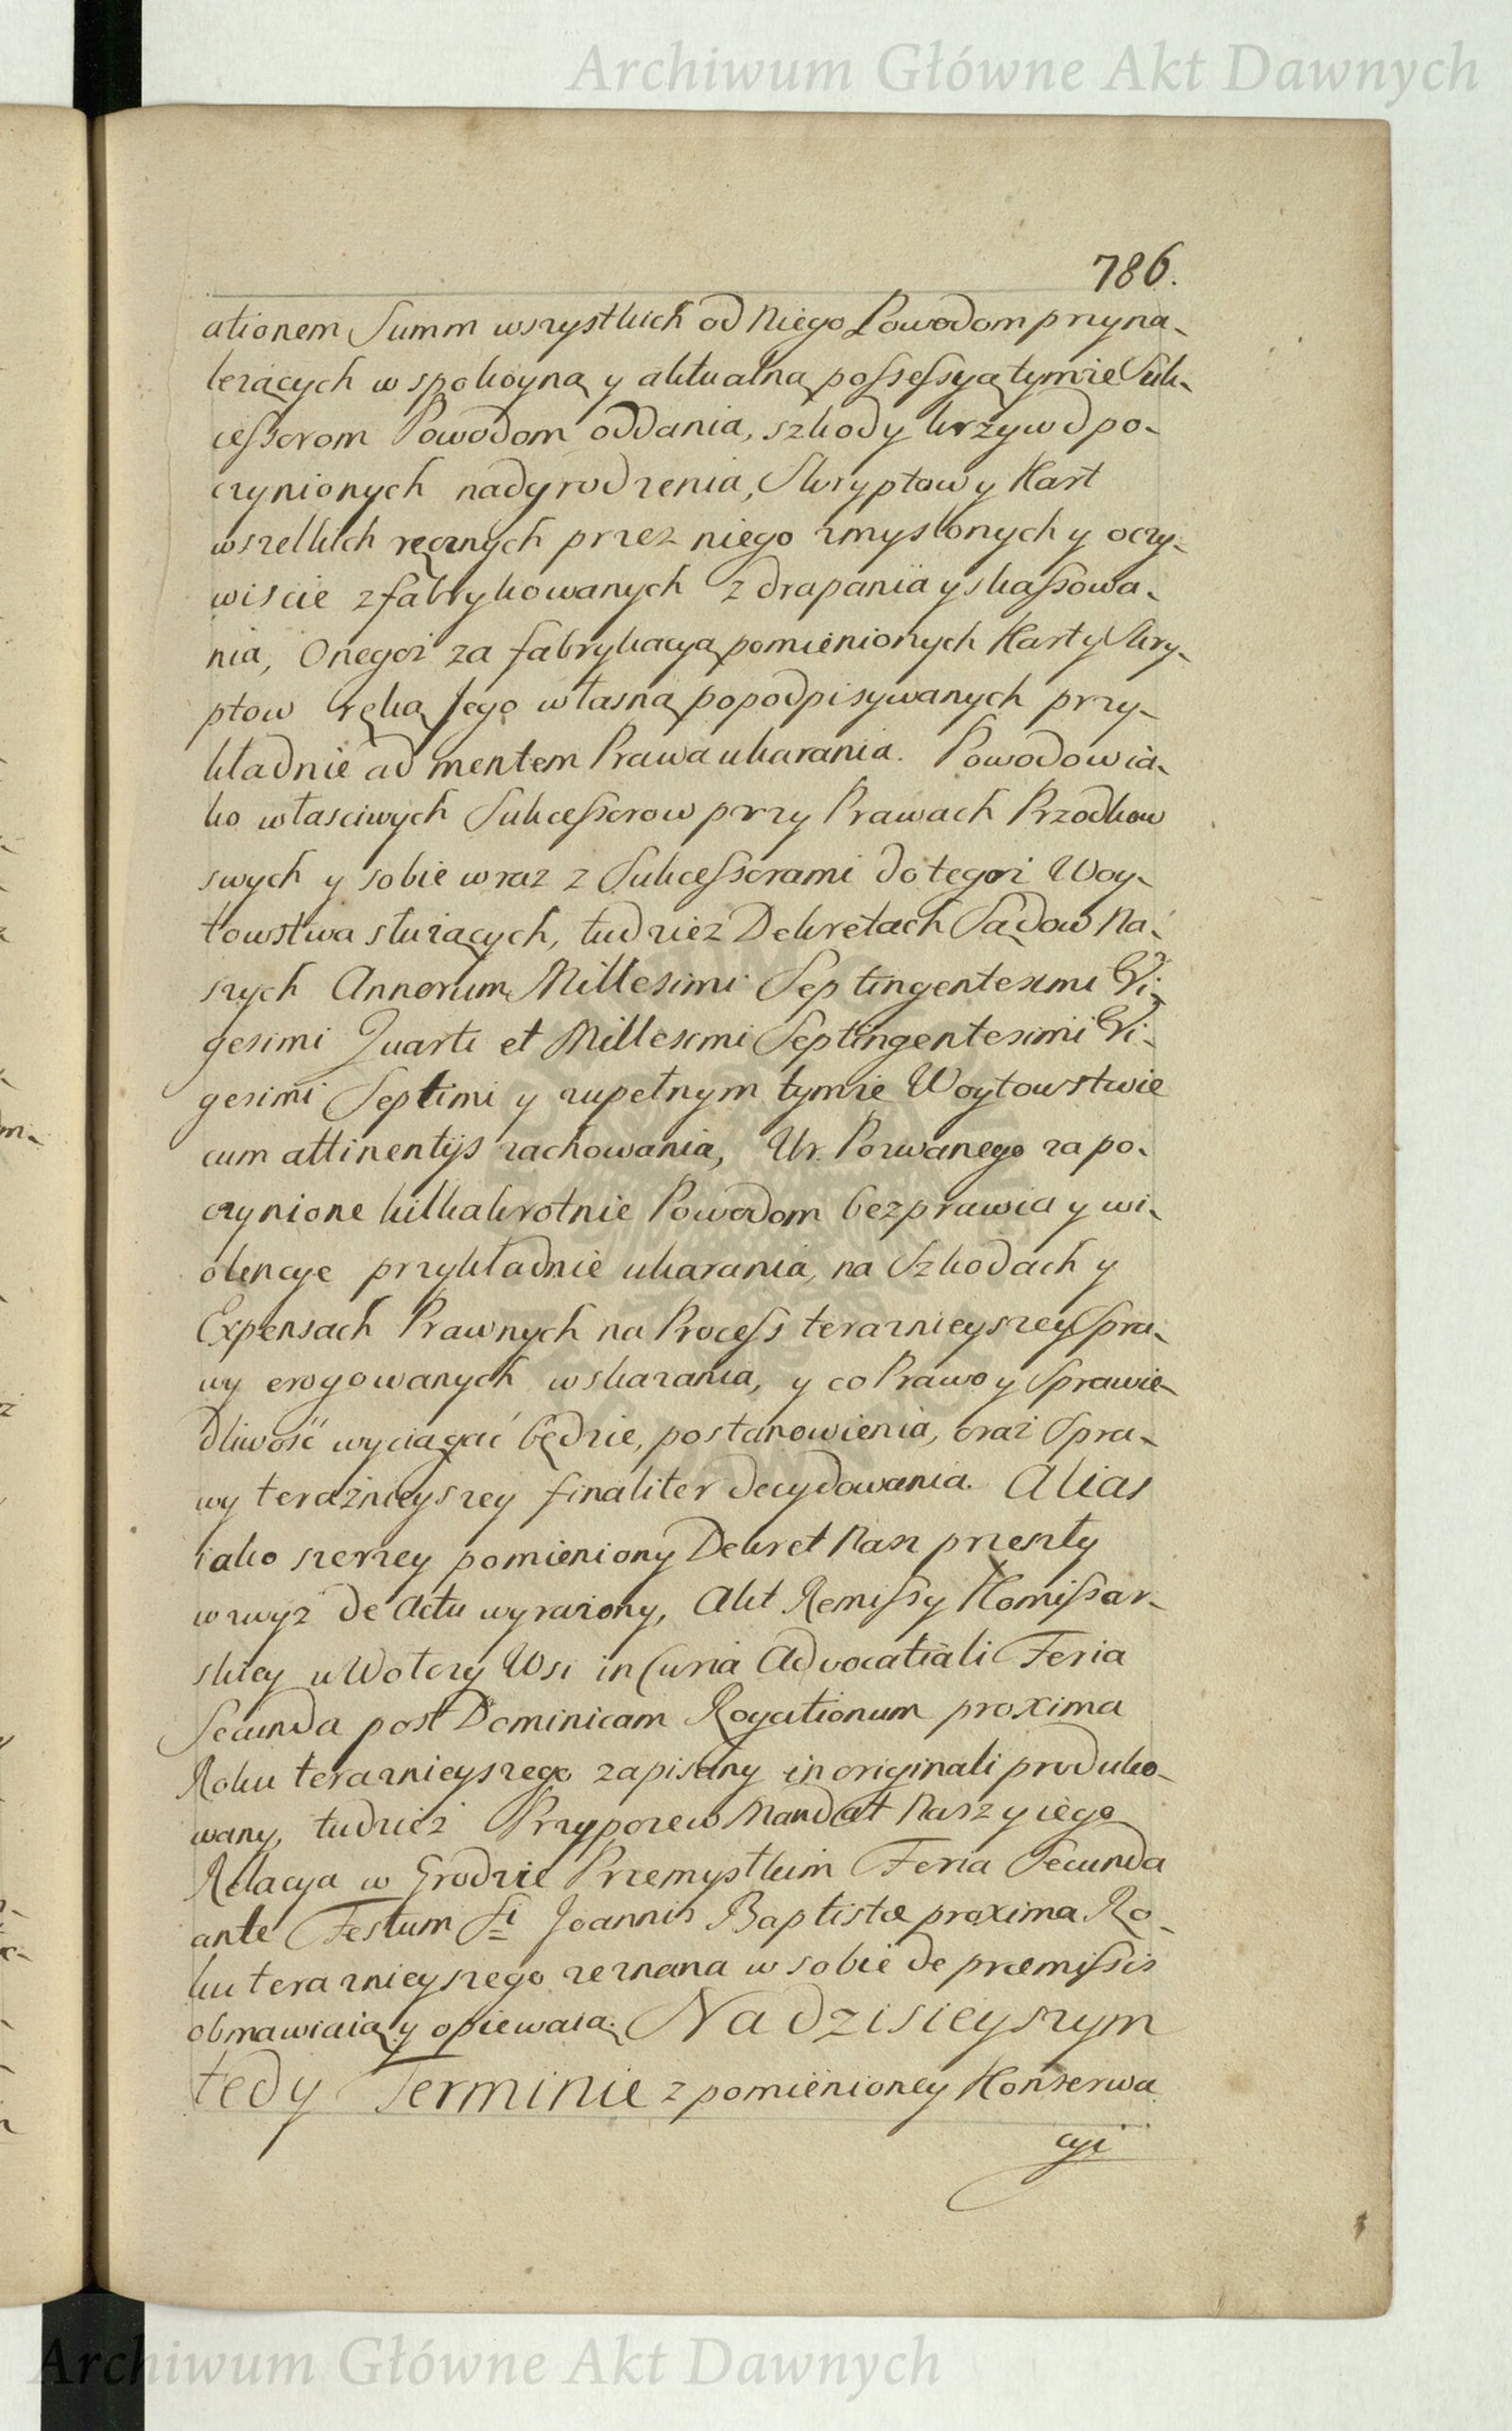 Archiwum Główne Akt Dawnych
786.
ationem Summ wszystkich od Niego Powodom przyna-
leżących w spokoyną y aktualną possessyą tymże Suk-
cessorom Powodom oddania, szkody krzywd po-
czynionych nadgrodzenia, Skryptow y Kart
wszelkich ręcznych przez niego zmyslonych y oczy-
wiscie zfabrykowanych zdrapania y skassowa-
nia, Onegoż za fabrykacyą pomienionych Kart y Skry-
ptow ręką Jego własną popodpisywanych przy-
kładnie ad mentem Prawa ukarania. Powodow ia-
ko własciwych Sukcessorow przy Prawach Przodkow
swych y sobie wraz z Sukcessorami do tegoż Woy-
towstwa służących, tudzież Dekretach Sądow Na-
szych Annorum Millesimi Septingentesimi Vi-
gesimi Quarti et Millesimi Septingentesimi Vi-
gesimi Septimi y zupełnym tymże Woytowstwie
cum attinentijs zachowania, Ur. Pozwanego za po-
czynione kilkakrotnie Powodom bezprawia y wi-
olencye przykładnie ukarania, na Szkodach y
Expensach Prawnych na Process teraznieyszey Spra-
wy erogowanych wskazania, y co Prawo y Sprawie-
dliwość wyciągać będzie, postanowienia, oraz Spra-
wy teraźnieyszey finaliter decydowania. Alias
iako szerzey pomieniony Dekret Nasz przeszły
wzwyż de Actu wyrażony, Akt Remissy Komissar-
skiey u Wolczy Wsi in Curia Advocatiali Feria
Secunda post Dominicam Rogationum proxima
Roku teraznieyszego zapisany in originali produko-
wany, tudzież Przypozew Mandat Nasz y iego
Relacya w Grodzie Przemyslkim Feria Secunda
ante Festum Sti Joannis Baptistæ proxima Ro-
ku teraznieyszego zeznana w sobie de præmissis
obmawiaią y opiewaią. Na dzisieyszym
tedy Terminie z pomienioney Konserwa
cyi
Archiwum Główne Akt Dawnych